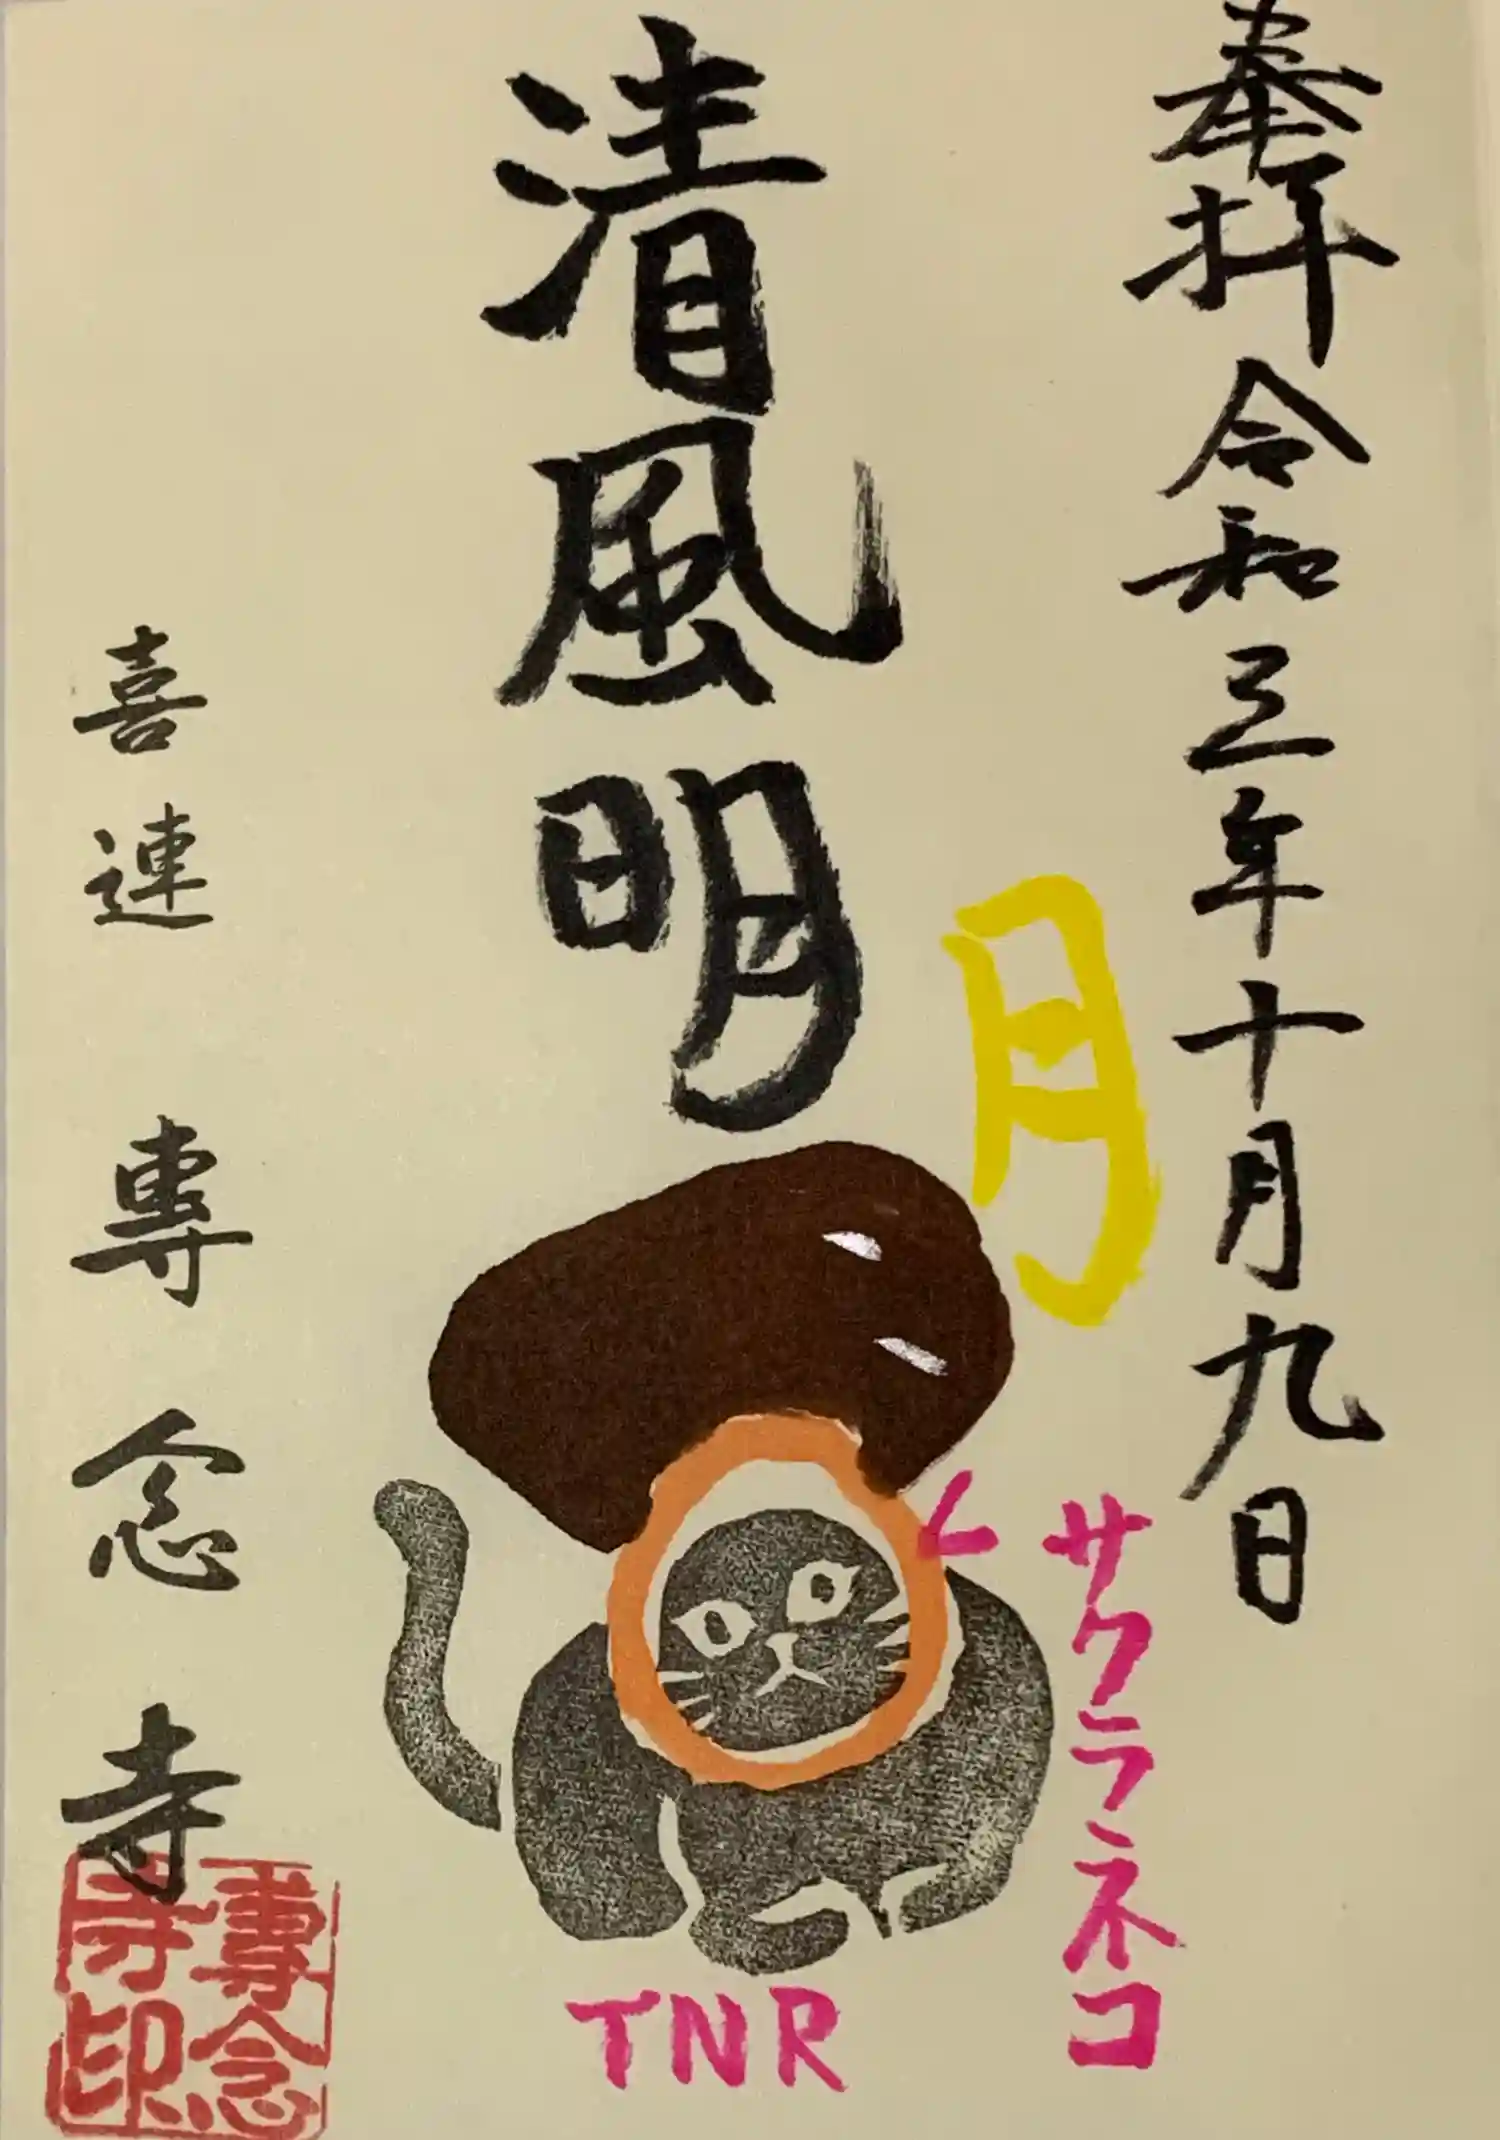 奉拝 令和三年十月九日
清風明
月
サクラネコ
TNR
喜連 專念寺
專念寺印